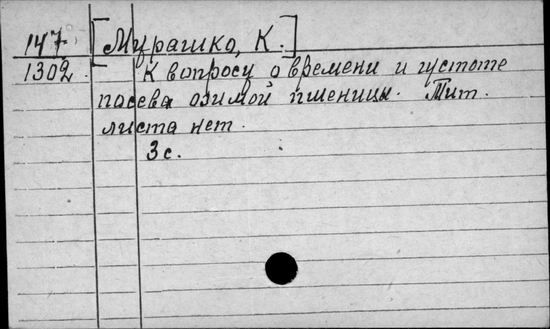 147 [Мурашко, К.]
1302. К вопросу о времени и густоте
посева озимой пшеницы. Тит.
листа нет.
3 с.